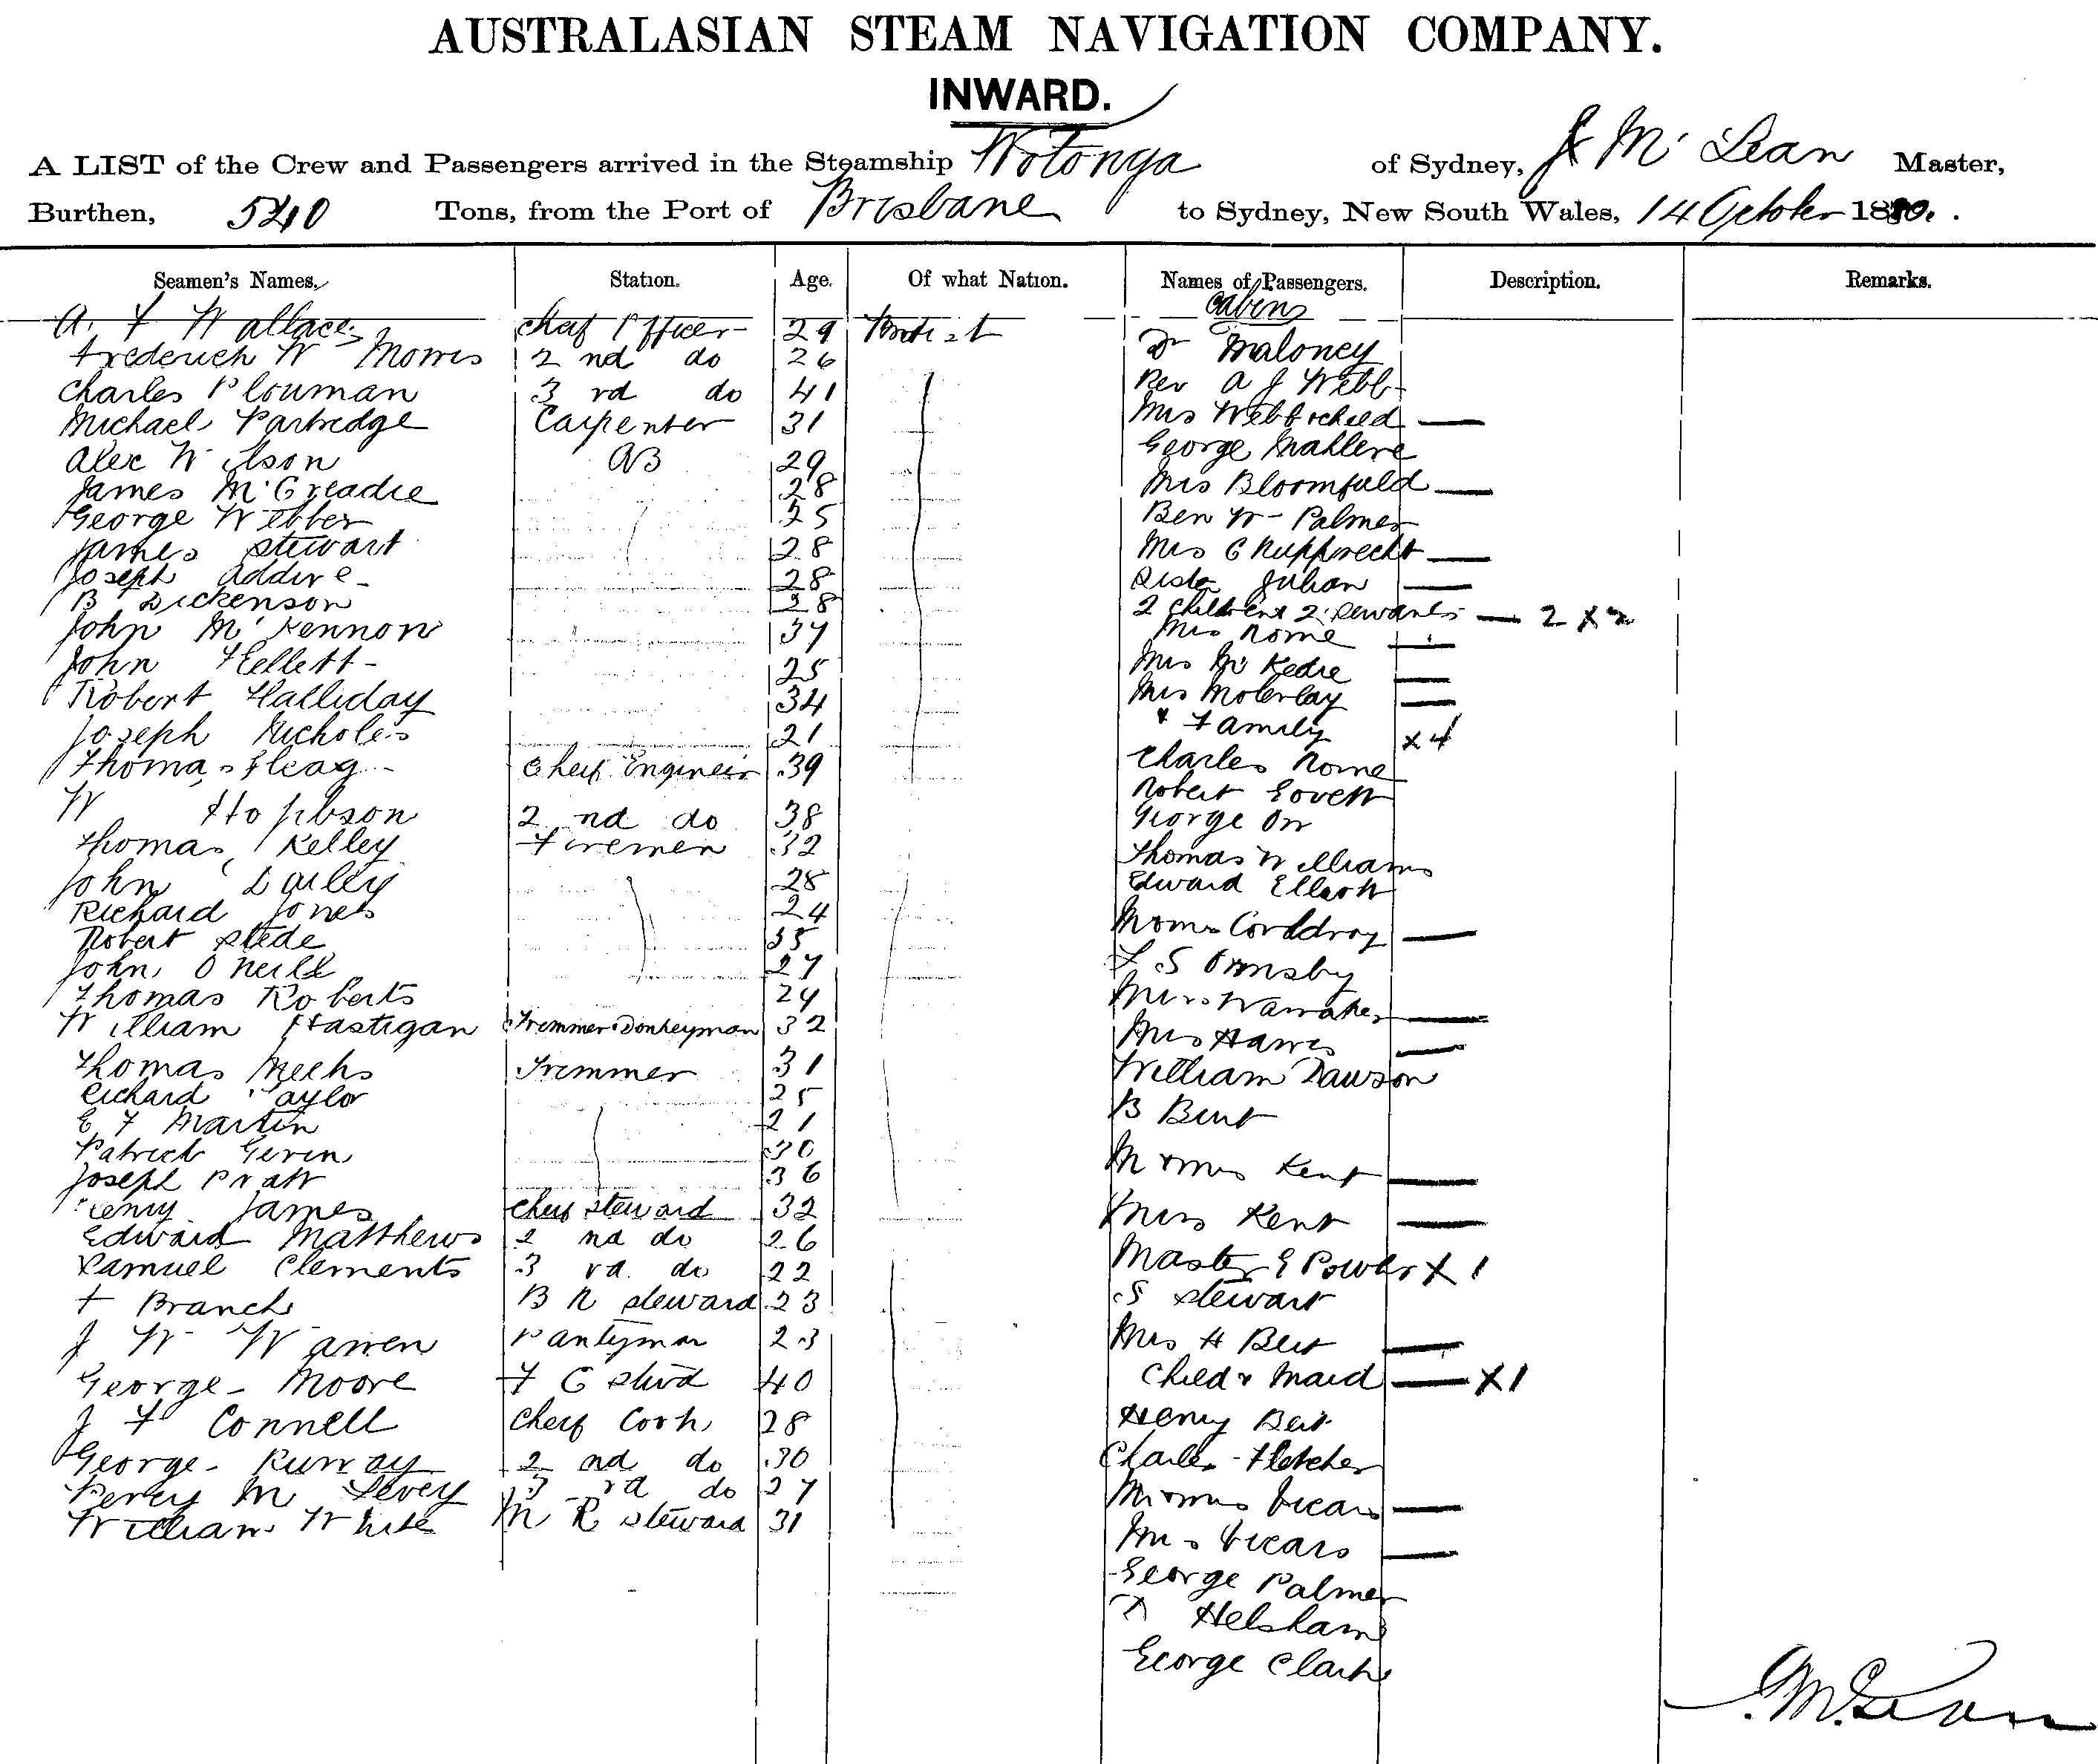 AUSTRALASIAN STEAM NAVIGATION COMPANY.
INWARD.
A LIST of the Crew and Passengers arrived in the Steamship Wotonga of Sydney, J McLean Master,
Burthen, 540 Tons, from the Port of Brisbane to Sydney, New South Wales, 14 October 1880.
Seamen's Names. Station. Age. Of what Nation. Names of Passengers. Description. Remarks.
Cabin
A. F Wallace Cheif Officer 29 British
Frederick W Morris 2nd do 26
Charles Plowman 3rd do 41
Michael Partredge Carpenter 31
Alec Wilson AB 29
James McCreadie 28
George Webber 25
James Stewart 28
Joseph Addive 28
B Dickenson 38
John McKennon 37
John Hellett 25
Robert Halliday 34
Joseph Nicholes 21
Thomas Cheif Engineer 39
W Hopbson 2nd do 38
Thomas Kelley Firemen 32
John Dailey 28
Richard Jones 24
Robert Stede 35
John O Neill 27
Thomas Roberts 24
William Hastigan Tremmer Donkeyman 32
Thomas Meeks Tremmer 31
Richard Taylor 25
E F Martin 21
Patrick Gerin 30
Joseph Pratt 36
Henry James Cheif Steward 32
Edward Matthews 2nd do 26
Samuel Clements 3rd do 22
F Branch B R Steward 23
J W Warren Pantryman 23
George Moore F C Stwd 40
J F Connell Cheif Cook 28
George Runway 2nd do 30
Percy M Levey 3rd do 27
William White M R Steward 31
Dr Maloney
Rev A J Webb
Mrs Webb & child
George
Mrs Bloomfield
Ben W Palmer
Mrs C Rupprecht
Sister Julian
2 Children & 2 Servants 2 X 2
Mrs Rome
Mrs McKedie
Mrs
& Family X 4
Charles Rome
Robert Lovett
George Orr
Thomas Williams
Edward Elliott
M & Mrs Corddroy
F S Ormsby
Mrs Warraker
Mrs Hawes
William Dawson
B Bent
M & Mrs Kent
Miss Kent
Master E Power X 1
S Stewart
Mrs H Bert
Child & Maid X 1
Henry Bert
Charles Fletcher
M & Mrs Vicars
Mrs Vicars
George Palmer
Helsham
George Clark
J. McLean